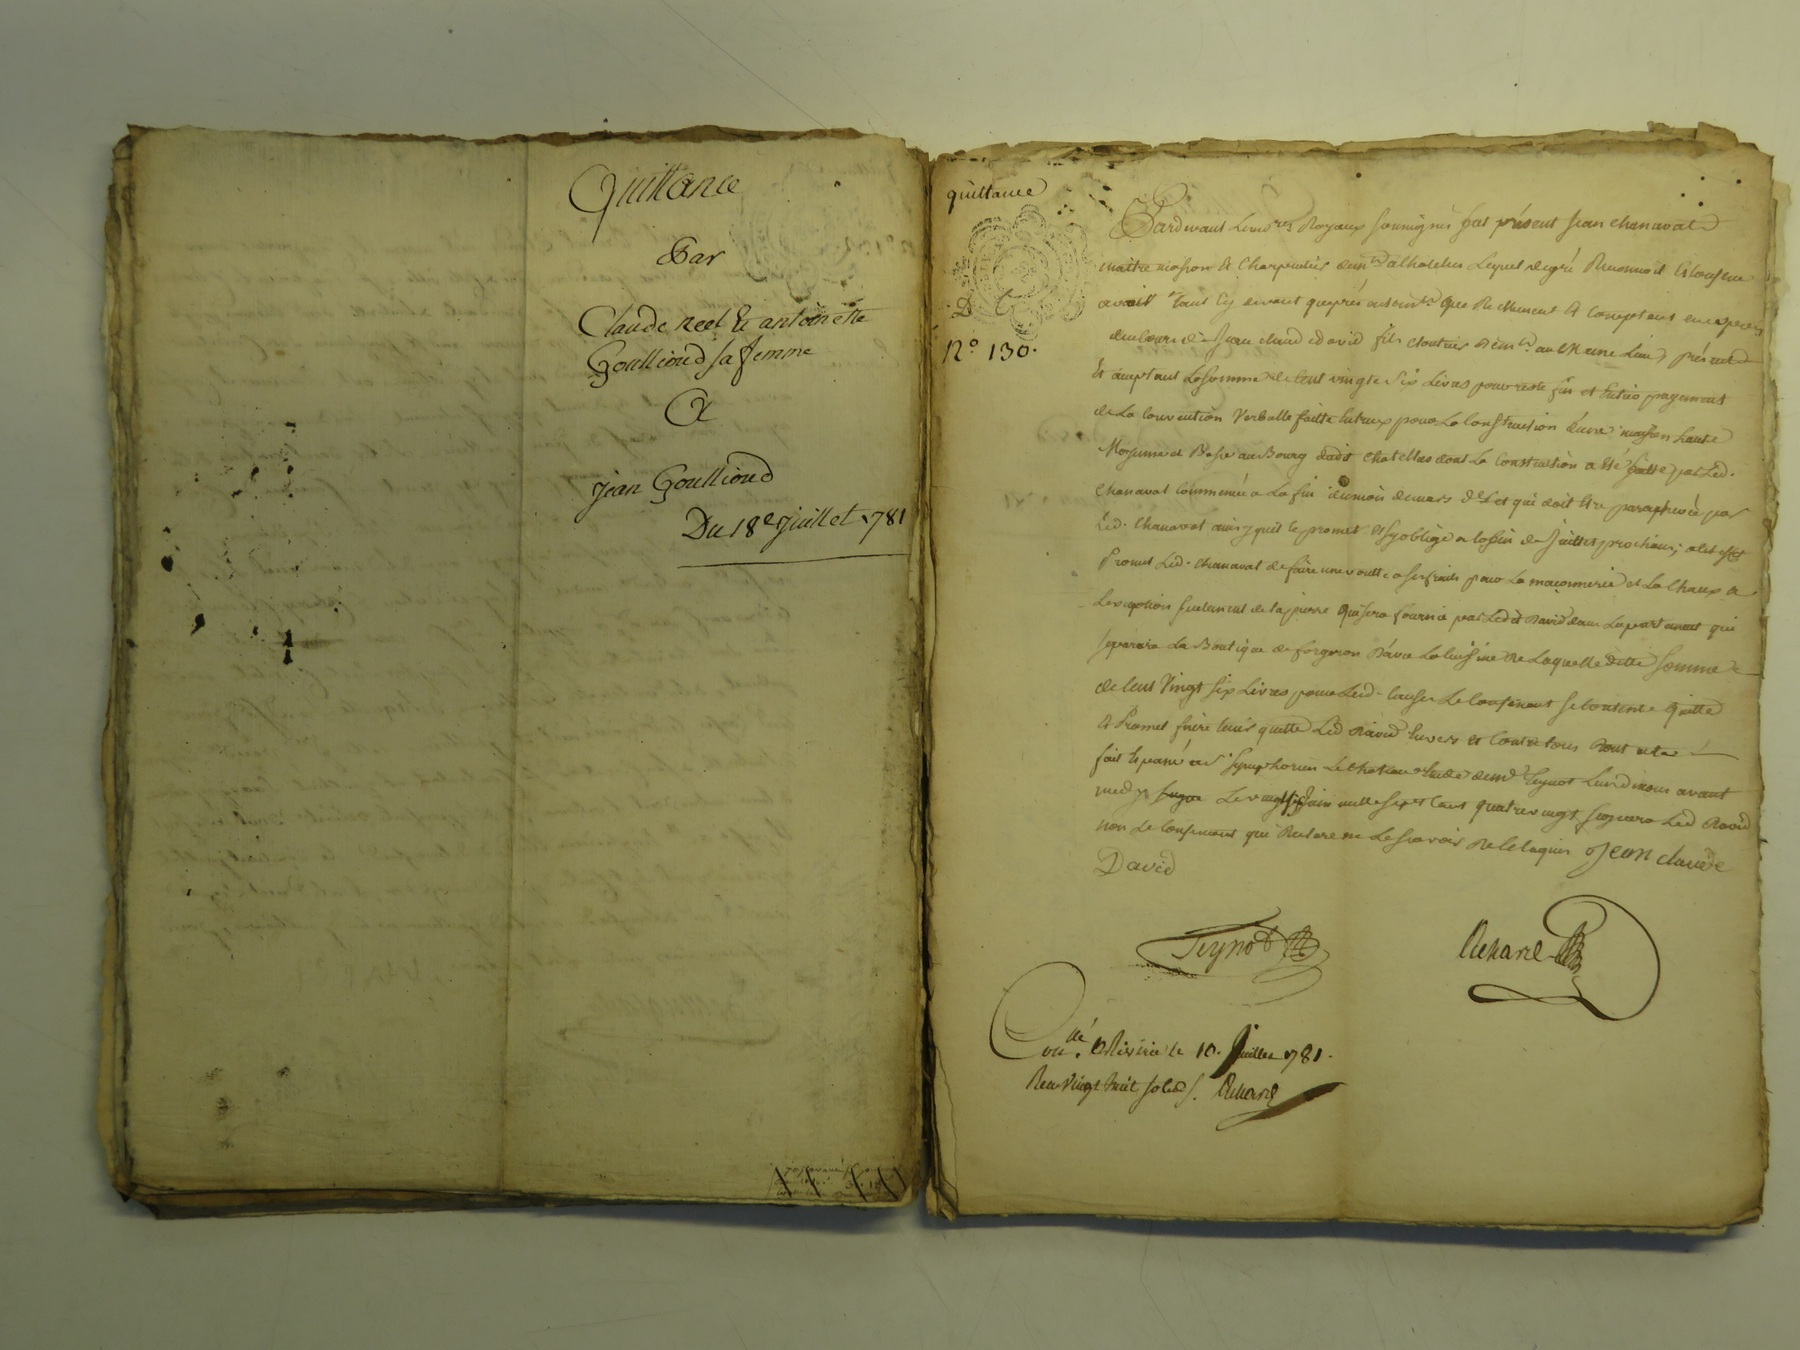 Quittance
Par
Claude neel Et antoinette
Goullioud sa femme
A
Jean Goullioud
Du 18e Juillet 1781
quittance
D
N.° 130.
Pardevant Les nores Royaux soussignés fut présent Jean chanavat
maitre masson & Charpentier demt a Lequel de gré Reconnoit Et Confesse
avoir tant cy devant que présentemt Reellement & Comptant en especes
de Jean claude david fils cloutier demt au présent
Et aceptant La Somme de Cent vingt Six Livres pour reste fin et Entier payement
de La Convention Verballe faitte Entreux pour La Construction d'une maison haute
Moyenne et Basse au Bourg dudit chatellus dont La Construction a été faitte par Led.
Chanavat Commencée a La fin du mois de mars et qui doit Etre par
Led. Chanavat ainsy quil le promet & sy oblige a la fin de Juillet prochain,
Promet Led. Chanavat de faire une voutte a ses fraits pour La maçonnerie et La Chaux a
Lexception seulement de la pierre qui sera fournie par Led. David dans Lapartement qui
separera La Boutique de forgeron d'avec La Cuisine de Laquelle ditte Somme
de Cent Vingt Six Livres pour Led. Causes Le Confessant se Contente quitte
& Promet faire tenir quitte Led David Envers et Contre tous Dont acte
fait Et passé a St Symphorien Le chateau Etude de me Teynot Lun de nous avant
midy Le vingt juin mille sept Cent quatre vingt signera Led David
non Le Confessant qui Declare ne Le scavoir de Ce Enquis Jean claude
David
Teynot
Achard
Conllé. a le 10. Juillet 1781.
Reçu Vingt huit sols. Achard